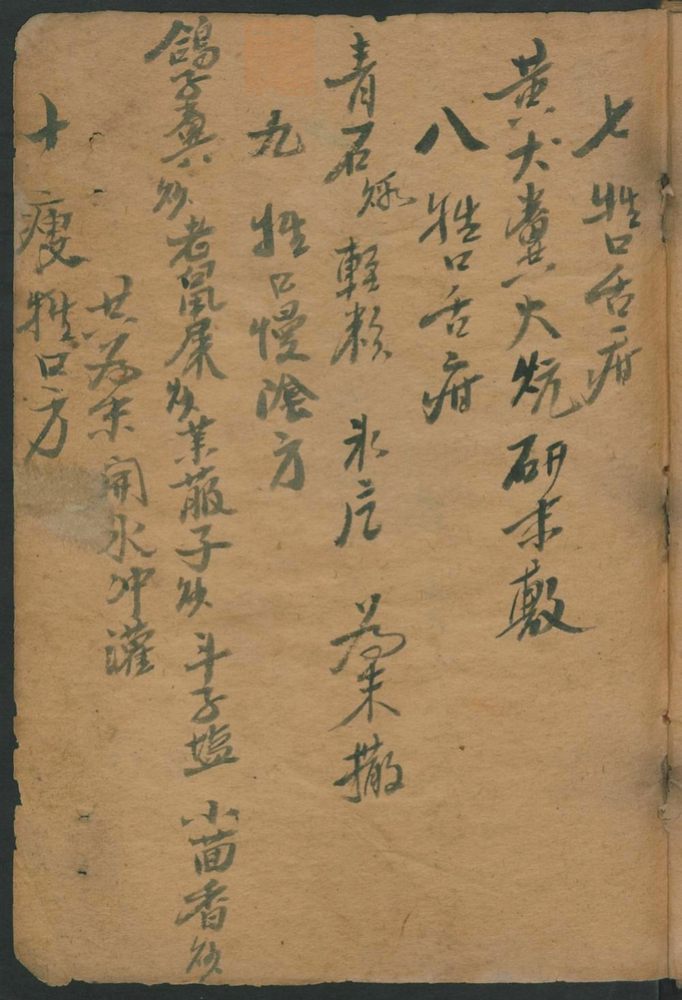 七 牲口舌疳
黄犬糞火炕研末敷
八 牲口舌疳
青石 輕粉 氷片 為末撒
九 牲口慢陰方
鴿子糞炒 老鼠屎炒 莱菔子炒 斗子塩 小茴香炒
共為末 開水冲灌
十 瘦牲口方